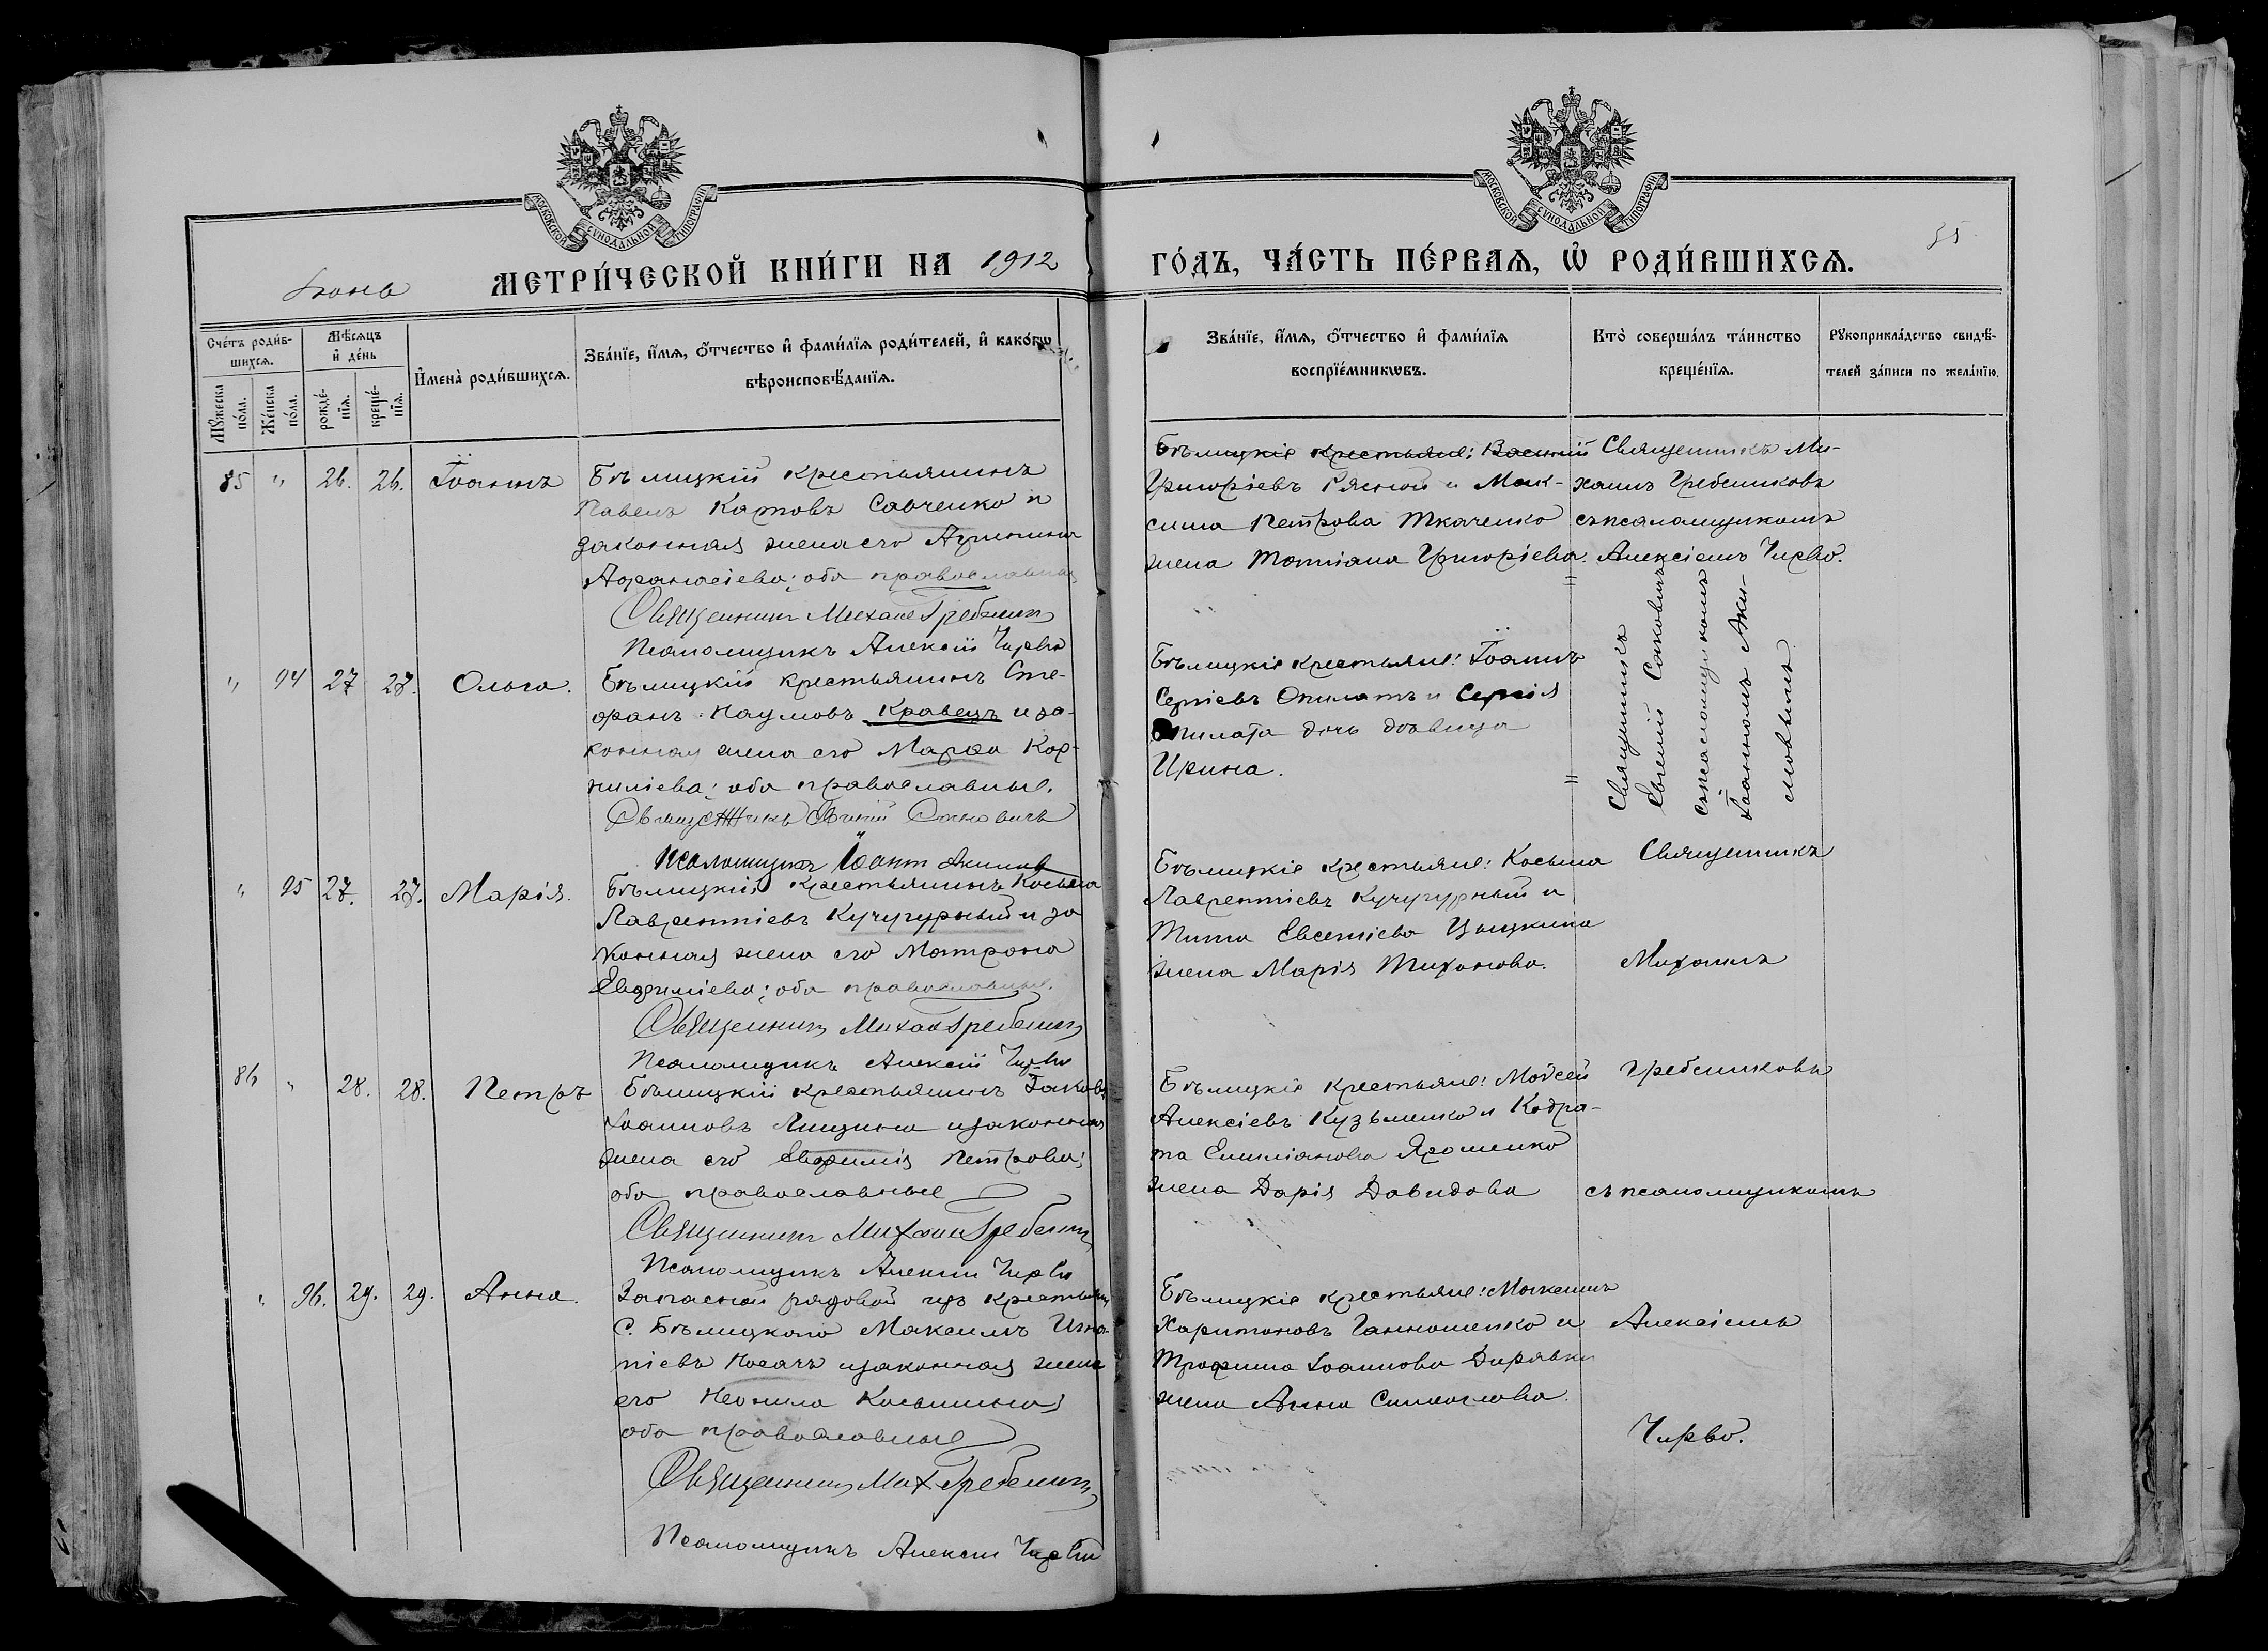 МОСКОВСКОЙ СѴНОДАЛЬНОЙ ТИПОГРАФІИ
МОСКОВСКОЙ СѴНОДАЛЬНОЙ ТИПОГРАФІИ
35
Іюнь МЕТРИ́ЧЕСКОЙ КНИ́ГИ НА 1912 ГО́ДЪ, ЧА́СТЬ ПЕ́РВАѦ, Ѡ҆ РОДИ́ВШИХСѦ.
Сче́тъ роди́в-
шихсѧ.
Мꙋжеска по́ла.
Же́нска по́ла.
Мѣ́сѧцъ
и҆ де́нь
рожде́-
нїѧ.
креще́-
нїѧ.
И҆мена̀ роди́вшихсѧ.
Зва́нїе, и҆́мѧ, ѻ҆́тчество и҆ фами́лїѧ роди́телей, и҆ како́гѡ
вѣроисповѣ́данїѧ.
Зва́нїе, и҆́мѧ, ѻ҆́тчество и҆ фами́лїѧ
воспрїе́мникѡвъ.
Кто̀ соверша́лъ та́инство
креще́нїѧ.
Рꙋкоприкла́дство свидѣ́-
телей за́писи по жела́нїю.
85 " 26. 26. Іоаннъ
Бѣлицкій крестьянинъ
Павелъ Карповъ Савченко и
законная жена его Агрипина
Афанасіева; оба православные
Священникъ Михаилъ Гребенник
Псаломщикъ Алексій Чирво
Бѣлицкіе крестьяне: Василій
Григоріевъ Рясной и Мак-
сима Петрова Ткаченко
жена Татіана Григоріева.
Священникъ Ми-
хаилъ Гребенниковъ
съ псаломщикомъ
Алексіемъ Чирво.
" 94 27 27. Ольга.
Бѣлицкій крестьянинъ Сте-
фанъ Наумовъ Кравецъ и за-
конная жена его Марфа Кор-
ниліева; оба православные.
Священникъ Евгеній
Псаломщикъ Іоанн Акимов
Бѣлицкіе крестьяне: Іоаннъ
Сергіевъ Опилатъ и Сергія
Опилата дочь дѣвица
Ирина.
Священникъ
Евгеній
съ псаломщикомъ
Іоанномъ Аки-
мовымъ.
" 95 27. 27. Марія.
Бѣлицкій крестьянинъ Косьма
Лаврентіевъ Кучугурный и за
конная жена его Матрона
Евфиміева; оба православные.
Священникъ Михаил Гребенник
Псаломщикъ Алексій Чирво
Бѣлицкіе крестьяне: Косьма
Лаврентіевъ Кучугурный и
Тита Евсетіева Цыцкина
жена Марія Тихонова.
Священникъ
Михаилъ
86 " 28. 28. Петръ
Бѣлицкій крестьянинъ Іаковъ
Іоанновъ Лицина и законная
жена его Евфимія Петрова;
оба православные
Священникъ Михаил Гребенник
Псаломщикъ Алексій Чирво
Бѣлицкіе крестьяне: Моисей
Алексіевъ Кузьменко и Кодра-
та Емиліанова Ярошенко
жена Дарія Давидова
Гребенниковъ
съ псаломщикомъ
" 96. 29. 29. Анна.
Запасной рядовой изъ крестьянъ
с. Бѣлицкаго Максимъ Игна-
тіевъ Носачъ и законная жена
его Неонила Косьмина;
оба православные
Священникъ Мих Гребенник
Псаломщикъ Алексій Чирво
Бѣлицкіе крестьяне: Максимъ
Харитоновъ Ганношенко и
Трофима Іоаннова Дирявки
жена Анна
Алексіемъ
Чирво.